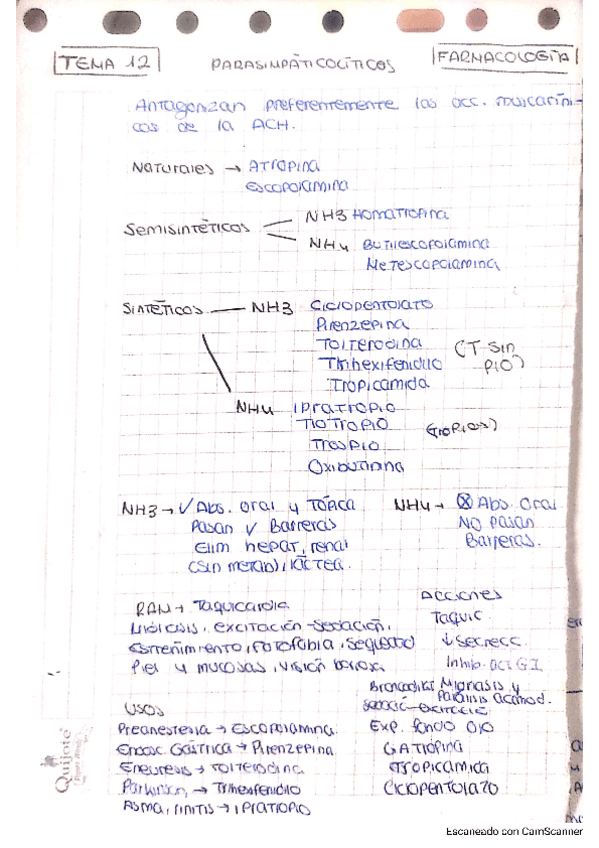 TEMA 12
PARASIMPÁTICOLÍTICOS
FARMACOLOGÍA
Antagonizan preferentemente las acc. muscaríni-
cas de la ACH.
Naturales → ATROPINA
ESCOPOLAMINA
SEMISINTÉTICOS
NH3 HOMATROPINA
NH4 BUTILESCOPOLAMINA
METESCOPOLAMINA
SINTÉTICOS
NH3 CICLOPENTOLATO
Pirenzepina
TOLTERODINA
Trihexifenidilo
TROPICAMIDA
(T SIN
PIO)
NH4 IPRATROPIO
TIOTROPIO
TROSPIO
OXIBUTININA
(TROPIOS)
NH3 → ✓ Abs. oral y TÓPICA
Pasan ✓ Barreras
Elim hepat, renal
(sin metab), láctea.
NH4 → ⊗ Abs. oral
NO Pasan
Barreras.
RAM → Taquicardia
Midriasis, excitación-sedación,
estreñimiento, fotofobia, sequedad
Piel y mucosas, visión borrosa
Acciones
Taquic
↓ secrecc.
Inhib. act GI.
Broncodilat Midriasis y
Parálisis acomod.
sedación-excitación
USOS
Preanestesia → Escopolamina.
Endosc. Gástrica → Pirenzepina
Eneuresis → TOLTERODINA
Parkinson → Trihexifenidilo
Asma, rinitis → IPRATROPIO
Exp. fondo ojo
TROPICAMIDA
CICLOPENTOLATO
Quijote
Escaneado con CamScanner